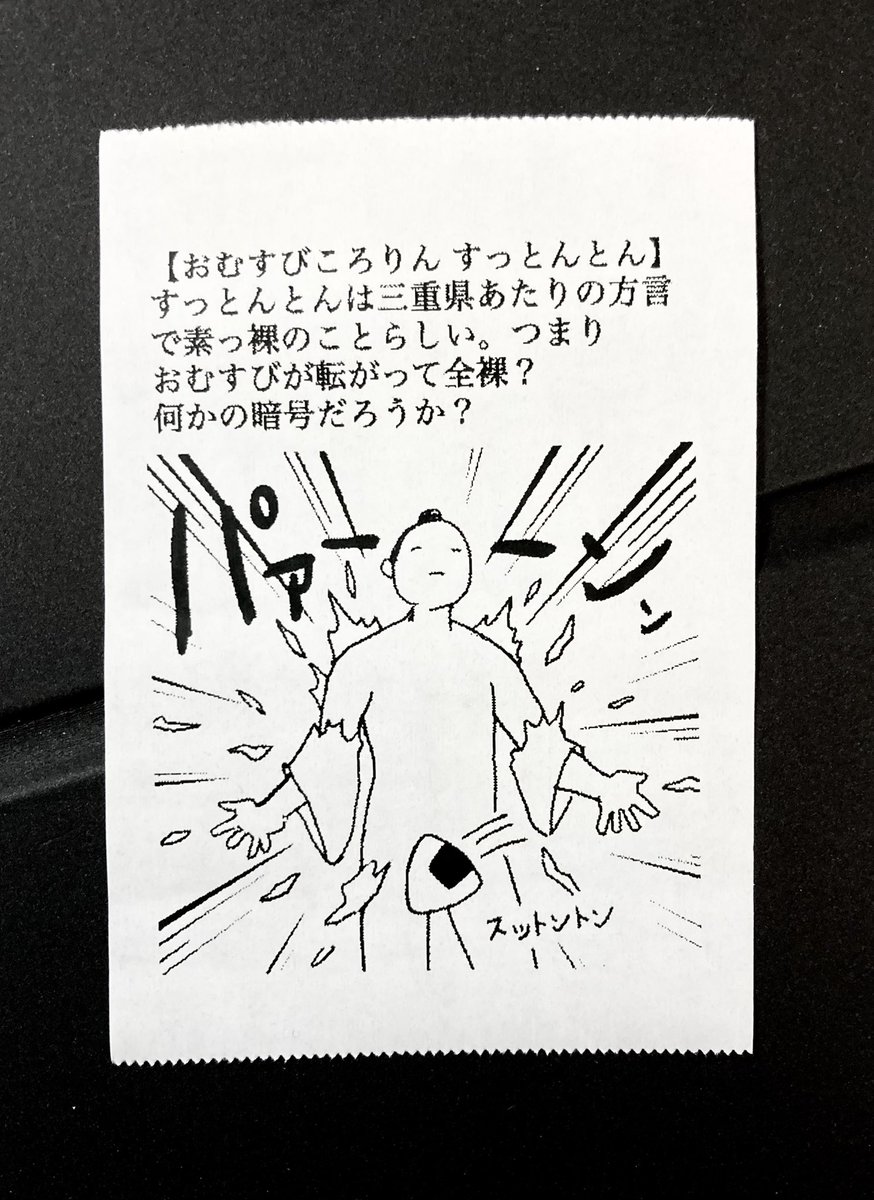 【おむすびころりん すっとんとん】
すっとんとんは三重県あたりの方言
で素っ裸のことらしい。つまり
おむすびが転がって全裸？
何かの暗号だろうか？
パァーーンッ
スットントン